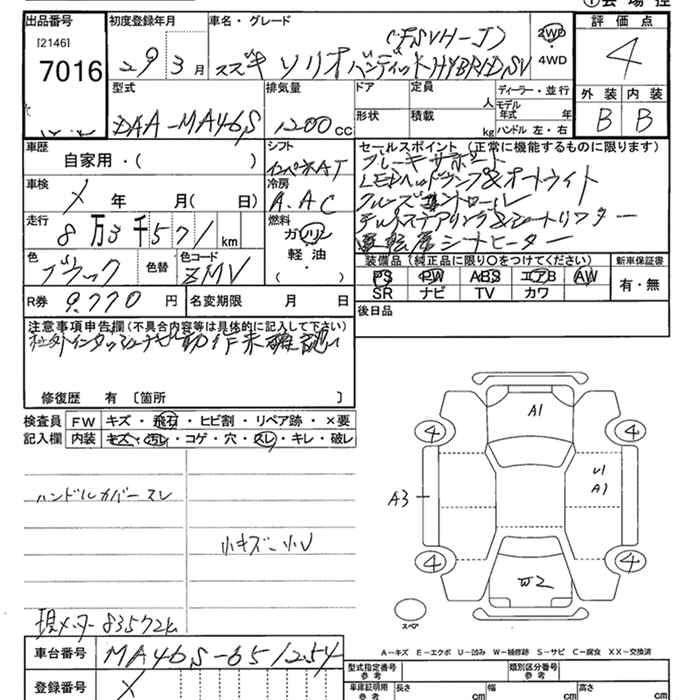 出品番号 初度登録年月 車名・グレード 評価点
[2146]
7016 29 3月 スズキ ソリオ バンディットHYBRIDSV (FSVH-J) 2WD・4WD 4
型式 排気量 ドア 定員 人 ディーラー・並行 外装 内装
DAA-MA46S 1200cc 形状 積載 kg モデル年式 年 ハンドル 左・右 B B
車歴 シフト セールスポイント(正常に機能するものに限ります)
自家用・( ) インパネAT ブレーキサポート
車検 冷房 LEDヘッドランプ&オートライト
X 年 月( 日) A.AC クルーズコントロール
走行 燃料 チルトステアリング&シートリフター
8万3千571km ガソリン 運転席シートヒーター
色 色替 色コード 軽油
ブラック ZMV ・( )
装備品(純正品に限り○をつけてください) 新車保証書
PS PW ABS エアB AW 有・無
SR ナビ TV カワ
R券 9,770円 名変期限 月 日 後日品
注意事項申告欄(不具合内容等は具体的に記入して下さい)
修復歴 有 〔箇所 〕
検査員 FW キズ・飛石・ヒビ割・リペア跡・×要
記入欄 内装 キズ・汚レ・コゲ・穴・スレ・キレ・破レ
ハンドルカバースレ
小キズ 小U
A1
4 4
U1
A1
A3
4 4
W2
スペア
現メーター83572k
A-キズ E-エクボ U-凹み W-補修跡 S-サビ C-腐食 XX-交換済
車台番号 MA46S-651254
登録番号 X
型式指定番号 参考 類別区分番号 参考
車庫証明用 参考 長さ cm 幅 cm 高さ cm